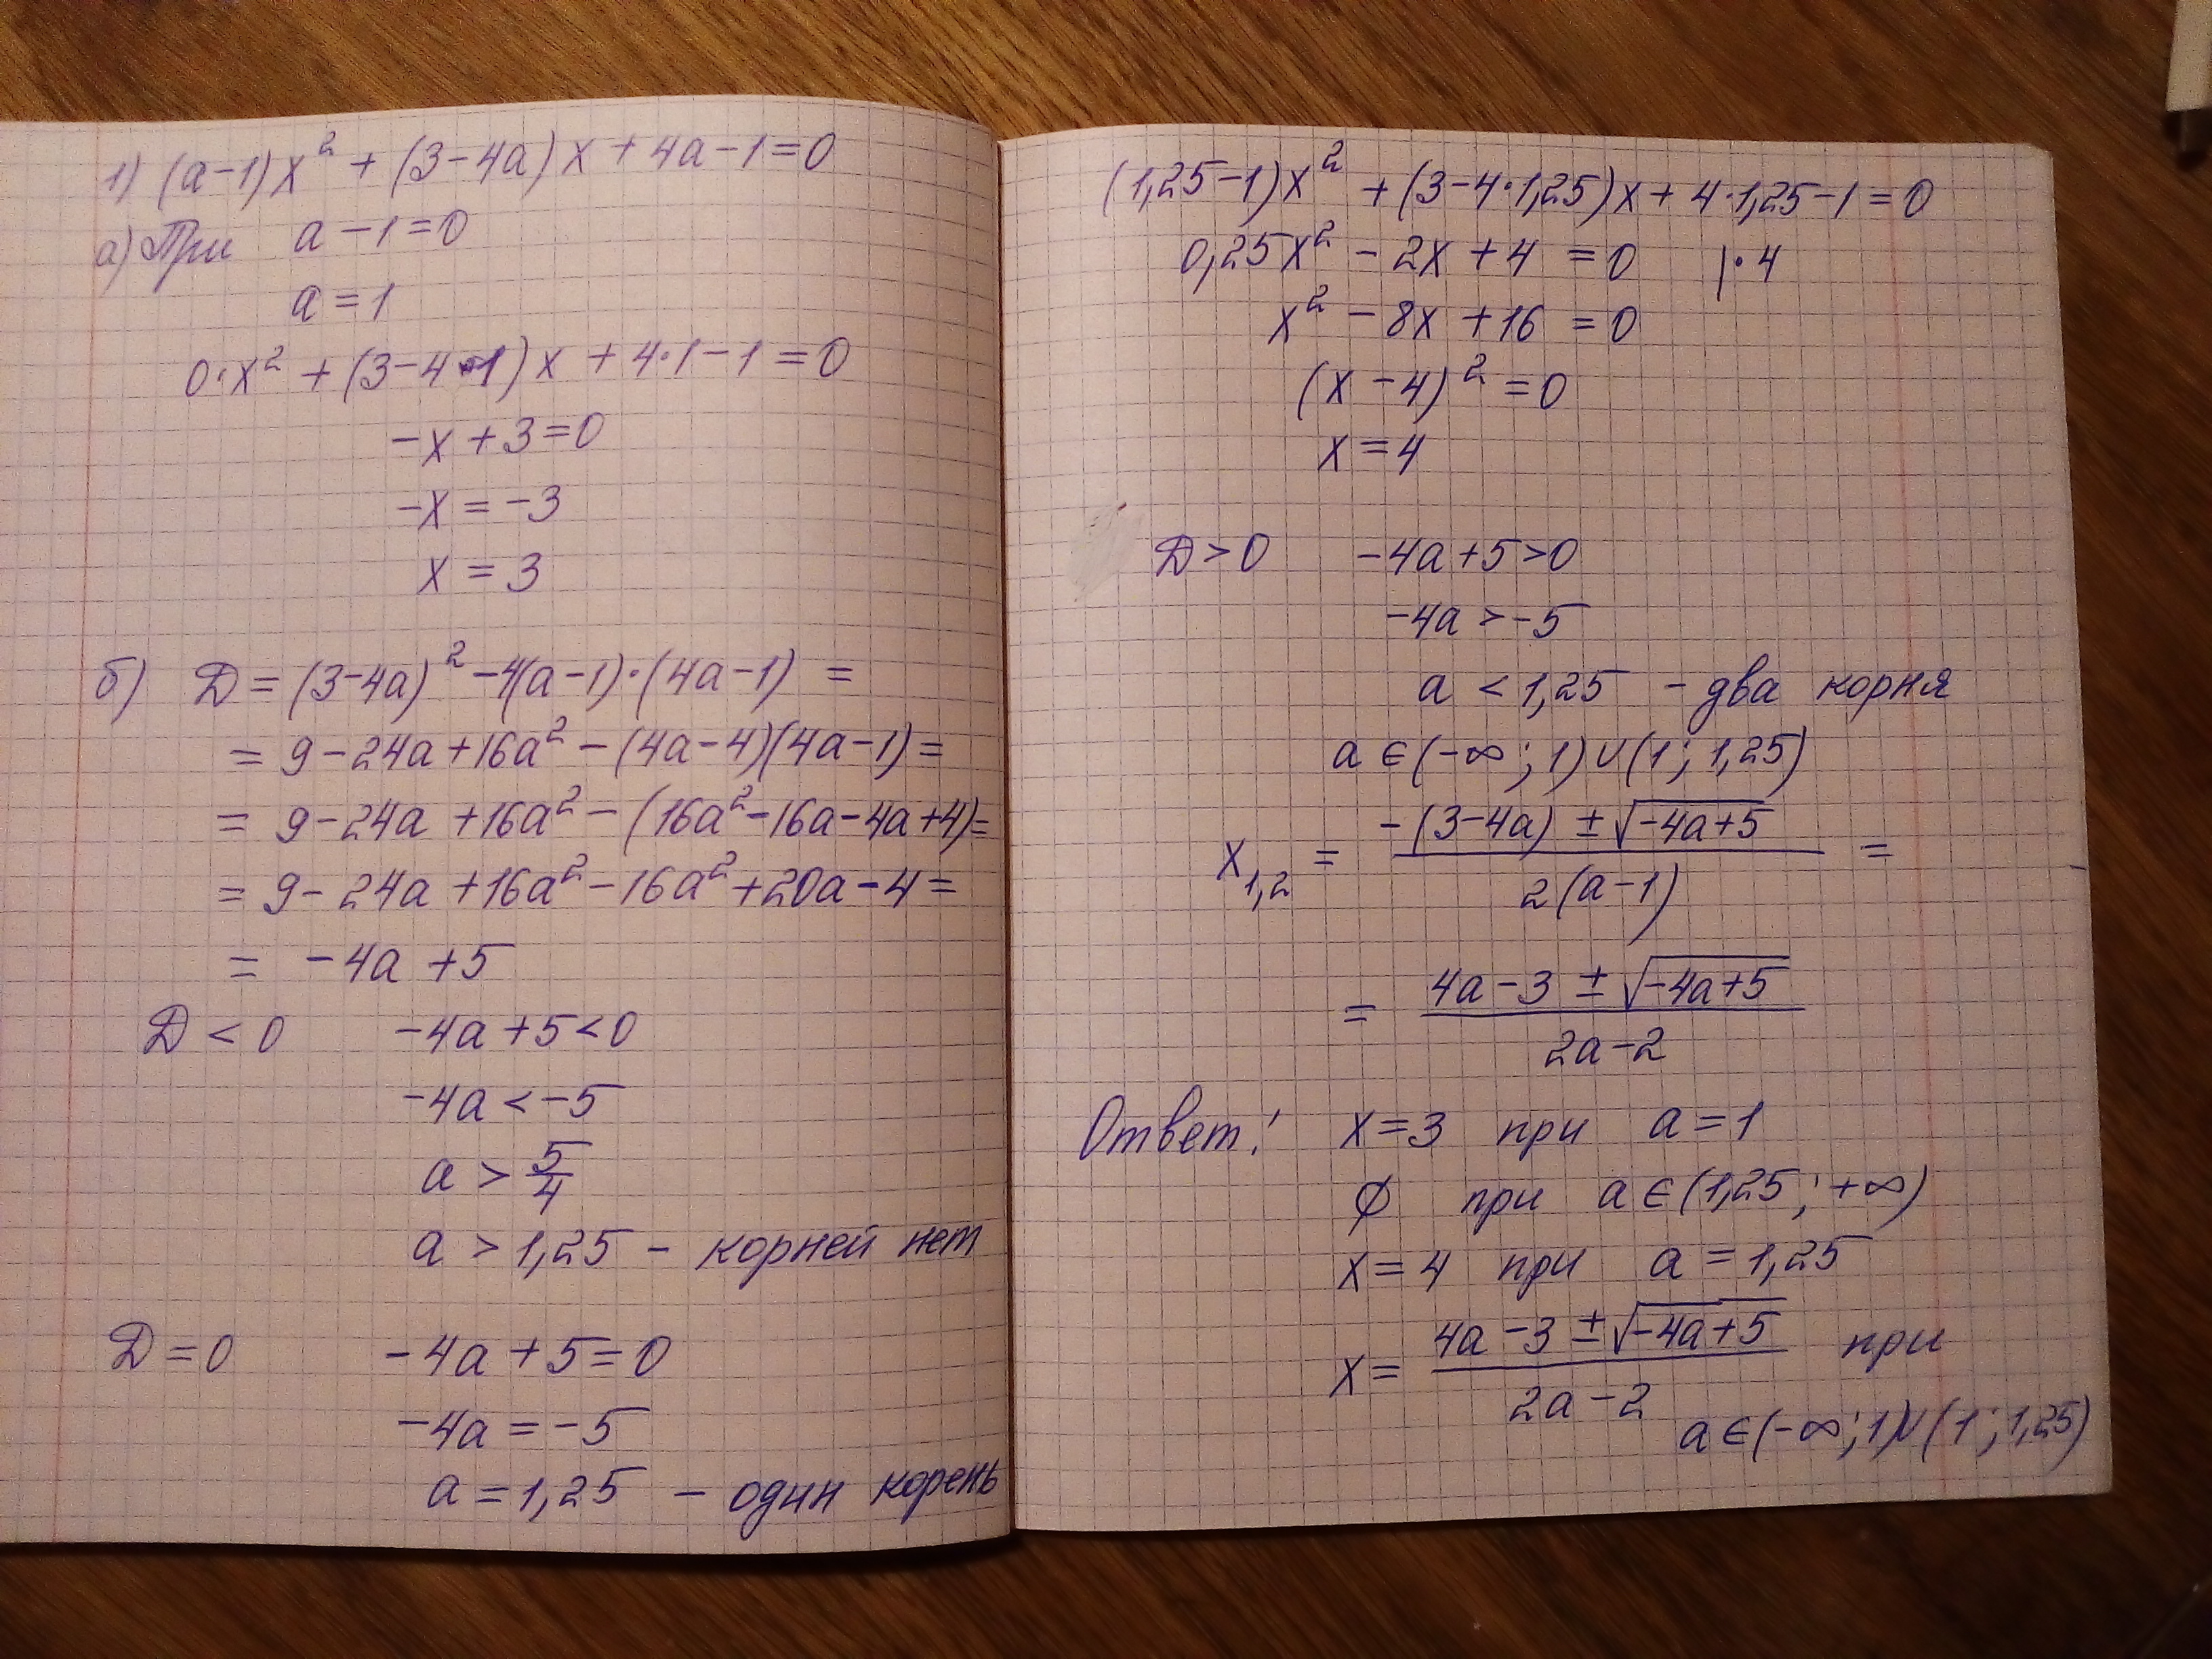 1) (a-1)x² + (3-4a)x + 4a-1=0
а) При a-1=0
a=1
0·x² + (3-4·1)x + 4·1-1=0
-x+3=0
-x=-3
x=3
б) D=(3-4a)²-4(a-1)·(4a-1)=
=9-24a+16a²-(4a-4)(4a-1)=
=9-24a+16a²-(16a²-16a-4a+4)=
=9-24a+16a²-16a²+20a-4=
=-4a+5
D<0 -4a+5<0
-4a<-5
a>5/4
a>1,25 - корней нет
D=0 -4a+5=0
-4a=-5
a=1,25 - один корень
(1,25-1)x²+(3-4·1,25)x+4·1,25-1=0
0,25x²-2x+4=0 |·4
x²-8x+16=0
(x-4)²=0
x=4
D>0 -4a+5>0
-4a>-5
a<1,25 - два корня
a∈(-∞;1)∪(1;1,25)
x₁,₂ = (-(3-4a)±√(-4a+5))/(2(a-1)) =
= (4a-3±√(-4a+5))/(2a-2)
Ответ: x=3 при a=1
∅ при a∈(1,25;+∞)
x=4 при a=1,25
x=(4a-3±√(-4a+5))/(2a-2) при
a∈(-∞;1)∪(1;1,25)